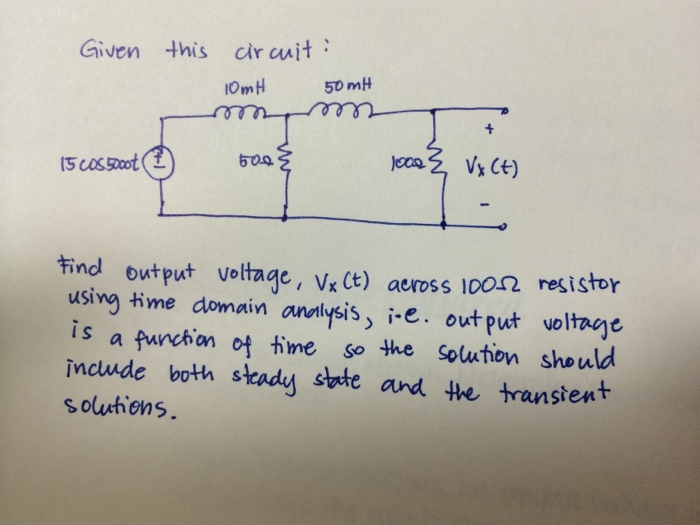 Given this circuit:
10mH 50mH
+
15 cos5000t 50Ω 100Ω Vx(t)
-
Find output voltage, Vx(t) across 100Ω resistor
using time domain analysis, i.e. output voltage
is a function of time so the solution should
include both steady state and the transient
solutions.